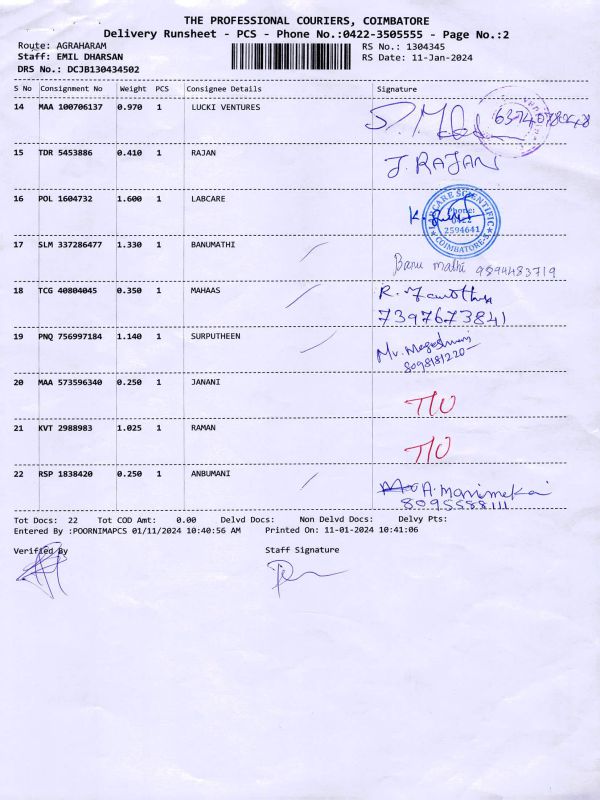 THE PROFESSIONAL COURIERS, COIMBATORE
Delivery Runsheet - PCS - Phone No.:0422-3505555 - Page No.:2
Route: AGRAHARAM RS No.: 1304345
Staff: EMIL DHARSAN RS Date: 11-Jan-2024
DRS No.: DCJB130434502
S No Consignment No Weight PCS Consignee Details Signature
14 MAA 100706137 0.970 1 LUCKI VENTURES
15 TDR 5453886 0.410 1 RAJAN J. RAJAN
16 POL 1604732 1.600 1 LABCARE
LABCARE SCIENTIFIC
Phone:
0422
2594641
COIMBATORE-5
17 SLM 337286477 1.330 1 BANUMATHI
Banu mathi 9894483719
18 TCG 40804045 0.350 1 MAHAAS
7397673841
19 PNQ 756997184 1.140 1 SURPUTHEEN
8098181220
20 MAA 573596340 0.250 1 JANANI
21 KVT 2988983 1.025 1 RAMAN
22 RSP 1838420 0.250 1 ANBUMANI
A. Manimekai
Tot Docs: 22 Tot COD Amt: 0.00 Delvd Docs: Non Delvd Docs: Delvy Pts:
Entered By :POORNIMAPCS 01/11/2024 10:40:56 AM Printed On: 11-01-2024 10:41:06
Verified By Staff Signature